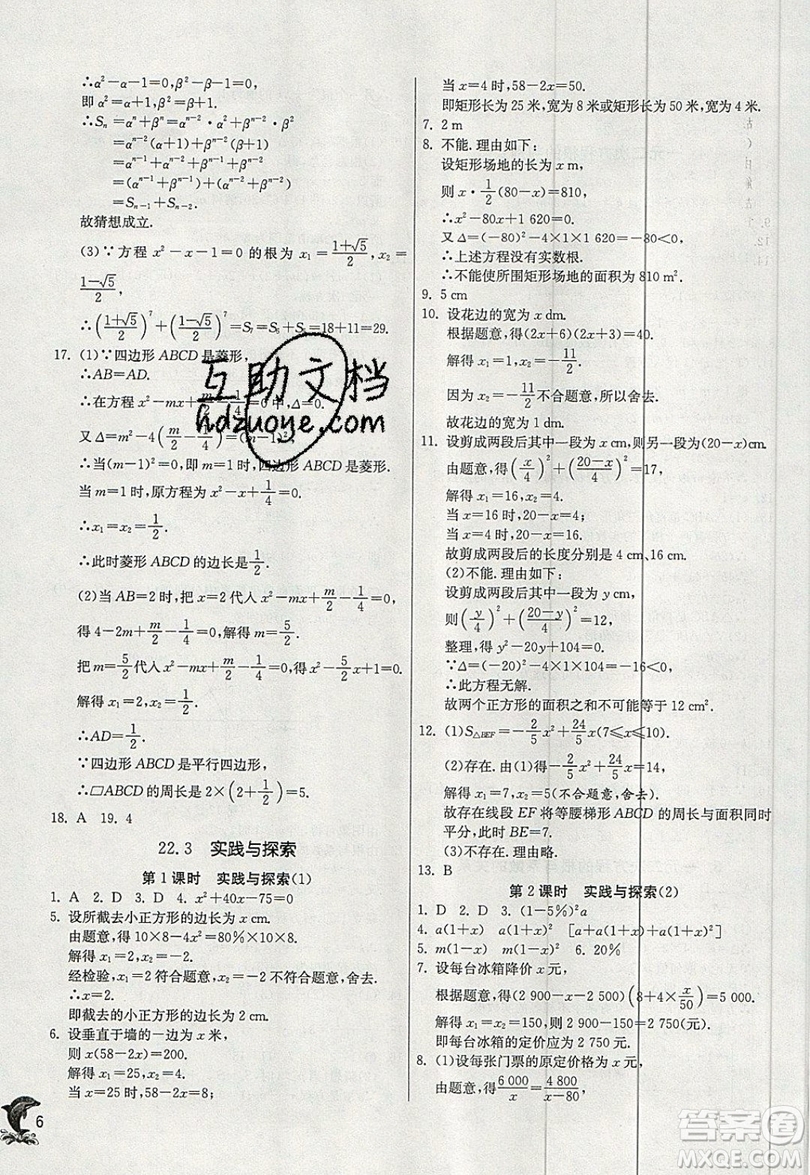 ∴α²-α-1=0,β²-β-1=0.
即 α²=α+1,β²=β+1.
∴Sₙ=αⁿ+βⁿ=αⁿ⁻²·α²+βⁿ⁻²·β²
=αⁿ⁻²(α+1)+βⁿ⁻²(β+1)
=αⁿ⁻¹+αⁿ⁻²+βⁿ⁻¹+βⁿ⁻²
=αⁿ⁻¹+βⁿ⁻¹+αⁿ⁻²+βⁿ⁻²
=Sₙ₋₁+Sₙ₋₂.
故猜想成立.
(3)∵方程 x²-x-1=0的根为 x₁=(1+√5)/2,x₂=
(1-√5)/2,
∴((1+√5)/2)⁷+((1-√5)/2)⁷=S₇=S₆+S₅=18+11=29.
17. (1)∵四边形 ABCD 是菱形,
∴AB=AD.
∴在方程 x²-mx+m/2-1/4=0中,Δ=0.
又Δ=m²-4(m/2-1/4)=(m-1)²,
∴当(m-1)²=0时,四边形 ABCD 是菱形.
当 m=1时,原方程为 x²-x+1/4=0.
∴x₁=x₂=1/2.
∴此时菱形 ABCD 的边长是1/2.
(2)当 AB=2时,把 x=2代入 x²-mx+m/2-1/4=0,
得4-2m+m/2-1/4=0,解得 m=5/2.
把 m=5/2代入 x²-mx+m/2-1/4=0,得 x²-5/2x+1=0.
解得 x₁=2,x₂=1/2.
∴AD=1/2.
∵四边形 ABCD 是平行四边形,
∴▱ABCD 的周长是 2×(2+1/2)=5.
18. A 19. 4
22.3 实践与探索
第1课时 实践与探索(1)
1. A 2. D 3. D 4. x²+40x-75=0
5. 设所截去小正方形的边长为 x cm.
由题意,得10×8-4x²=80%×10×8.
解得 x₁=2,x₂=-2.
经检验,x₁=2符合题意,x₂=-2不符合题意,舍去.
∴x=2.
即截去的小正方形的边长为2 cm.
6. 设垂直于墙的一边为 x 米,
则 x(58-2x)=200.
解得 x₁=25,x₂=4.
当 x=25时,58-2x=8;
当 x=4时,58-2x=50.
即矩形长为25米,宽为8米或矩形长为50米,宽为4米.
7. 2 m
8. 不能.理由如下:
设矩形场地的长为 x m,
则 x·1/2(80-x)=810.
∴x²-80x+1 620=0.
又Δ=(-80)²-4×1×1 620=-80<0,
∴上述方程没有实数根.
∴不能使所围矩形场地的面积为810 m².
9. 5 cm
10. 设花边的宽为 x dm.
根据题意,得(2x+6)(2x+3)=40.
解得 x₁=1,x₂=-11/2.
因为 x₂=-11/2不合题意,所以舍去.
故花边的宽为1 dm.
11. 设剪成两段后其中一段为 x cm,则另一段为(20-x)cm.
由题意,得(x/4)²+((20-x)/4)²=17,
解得 x₁=16,x₂=4.
当 x=16时,20-x=4;
当 x=4时,20-x=16.
故剪成两段后的长度分别是4 cm,16 cm.
(2)不能.理由如下:
设剪成两段后其中一段为 y cm,
则(y/4)²+((20-y)/4)²=12,
整理,得 y²-20y+104=0.
∵Δ=(-20)²-4×1×104=-16<0,
∴此方程无解.
故两个正方形的面积之和不可能等于12 cm².
12. (1)S△BEF=-2/5x²+24/5x(7≤x≤10).
(2)存在.由(1),得-2/5x²+24/5x=14.
解得 x₁=7,x₂=5(不合题意,舍去).
故存在线段 EF 将等腰梯形 ABCD 的周长与面积同时
平分,此时 BE=7.
(3)不存在.理由略.
13. B
第2课时 实践与探索(2)
1. D 2. D 3. (1-5%)²a
4. a(1+x) a(1+x)² [a+a(1+x)+a(1+x)²]
5. m(1-x) m(1-x)² 6. 20%
7. 设每台冰箱降价 x 元,
根据题意,得(2 900-x-2 500)(8+4×x/50)=5 000.
解得 x₁=x₂=150,则2 900-150=2 750(元).
即每台冰箱的定价应为2 750元.
8. (1)设每张门票的原定价格为 x 元,
由题意,得6 000/x=4 800/(x-80).
6
互助文档
hdzuoye.com
答案圈
MXQE.COM